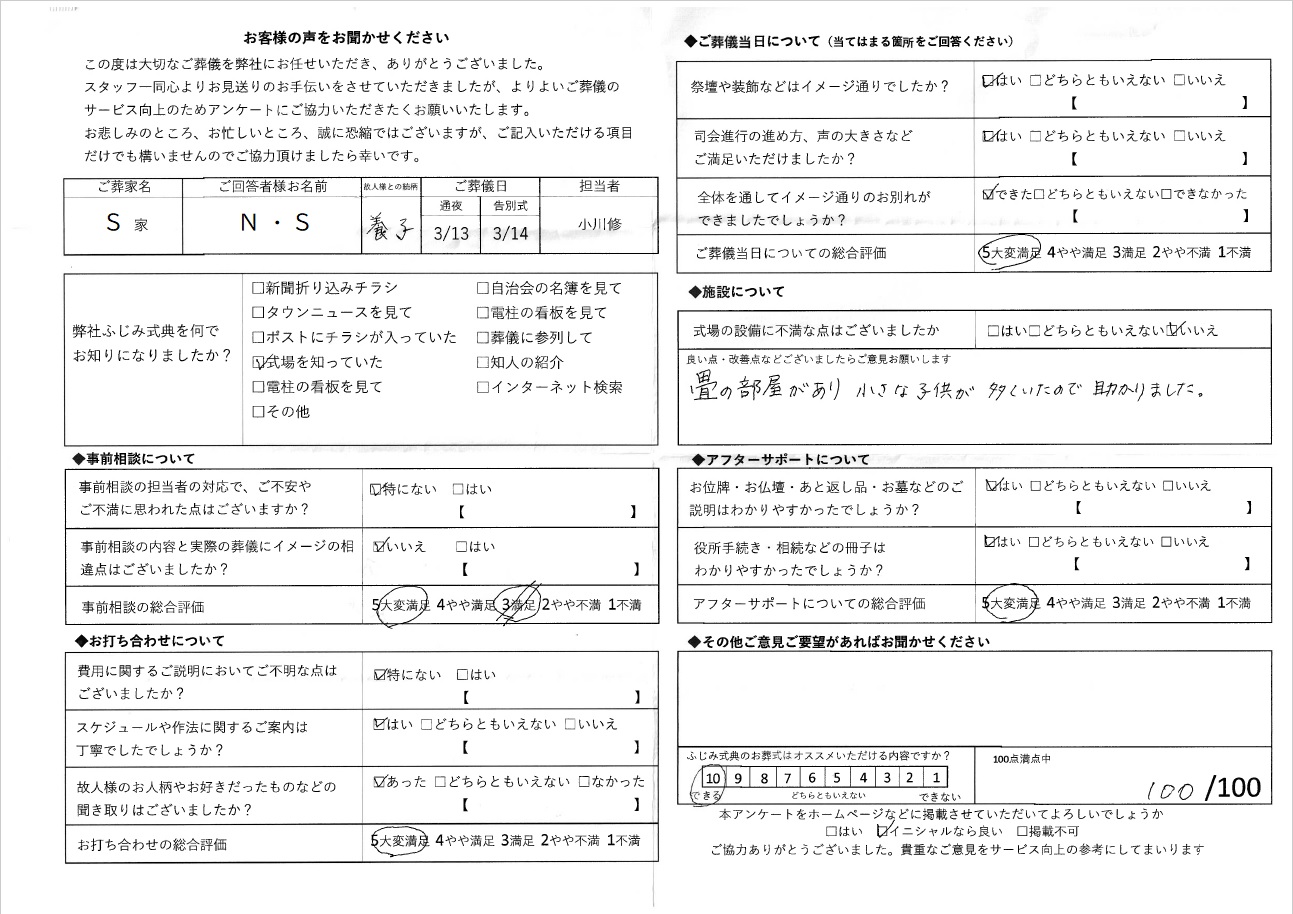 お客様の声をお聞かせください
この度は大切なご葬儀を弊社にお任せいただき、ありがとうございました。
スタッフ一同心よりお見送りのお手伝いをさせていただきましたが、よりよいご葬儀の
サービス向上のためアンケートにご協力いただきたくお願いいたします。
お悲しみのところ、お忙しいところ、誠に恐縮ではございますが、ご記入いただける項目
だけでも構いませんのでご協力頂けましたら幸いです。
ご葬家名 ご回答者様お名前 故人様との続柄 ご葬儀日 担当者
通夜 告別式
S 家 N・S 養子 3/13 3/14 小川修
弊社ふじみ式典を何で
お知りになりましたか？
□新聞折り込みチラシ □自治会の名簿を見て
□タウンニュースを見て □電柱の看板を見て
□ポストにチラシが入っていた □葬儀に参列して
☑式場を知っていた □知人の紹介
□電柱の看板を見て □インターネット検索
□その他
◆事前相談について
事前相談の担当者の対応で、ご不安や
ご不満に思われた点はございますか？
☑特にない □はい
【 】
事前相談の内容と実際の葬儀にイメージの相
違点はございましたか？
☑いいえ □はい
【 】
事前相談の総合評価 5大変満足 4やや満足 3満足 2やや不満 1不満
◆お打ち合わせについて
費用に関するご説明においてご不明な点は
ございましたか？
☑特にない □はい
【 】
スケジュールや作法に関するご案内は
丁寧でしたでしょうか？
☑はい □どちらともいえない □いいえ
【 】
故人様のお人柄やお好きだったものなどの
聞き取りはございましたか？
☑あった □どちらともいえない □なかった
【 】
お打ち合わせの総合評価 5大変満足 4やや満足 3満足 2やや不満 1不満
◆ご葬儀当日について（当てはまる箇所をご回答ください）
祭壇や装飾などはイメージ通りでしたか？
☑はい □どちらともいえない □いいえ
【 】
司会進行の進め方、声の大きさなど
ご満足いただけましたか？
☑はい □どちらともいえない □いいえ
【 】
全体を通してイメージ通りのお別れが
できましたでしょうか？
☑できた□どちらともいえない□できなかった
【 】
ご葬儀当日についての総合評価 5大変満足 4やや満足 3満足 2やや不満 1不満
◆施設について
式場の設備に不満な点はございましたか □はい□どちらともいえない☑いいえ
良い点・改善点などございましたらご意見お願いします
畳の部屋があり 小さな子供が 多くいたので 助かりました。
◆アフターサポートについて
お位牌・お仏壇・あと返し品・お墓などのご
説明はわかりやすかったでしょうか？
☑はい □どちらともいえない □いいえ
【 】
役所手続き・相続などの冊子は
わかりやすかったでしょうか？
☑はい □どちらともいえない □いいえ
【 】
アフターサポートについての総合評価 5大変満足 4やや満足 3満足 2やや不満 1不満
◆その他ご意見ご要望があればお聞かせください
ふじみ式典のお葬式はオススメいただける内容ですか？
10 9 8 7 6 5 4 3 2 1
できる どちらともいえない できない
100点満点中
100 /100
本アンケートをホームページなどに掲載させていただいてよろしいでしょうか
□はい ☑イニシャルなら良い □掲載不可
ご協力ありがとうございました。貴重なご意見をサービス向上の参考にしてまいります